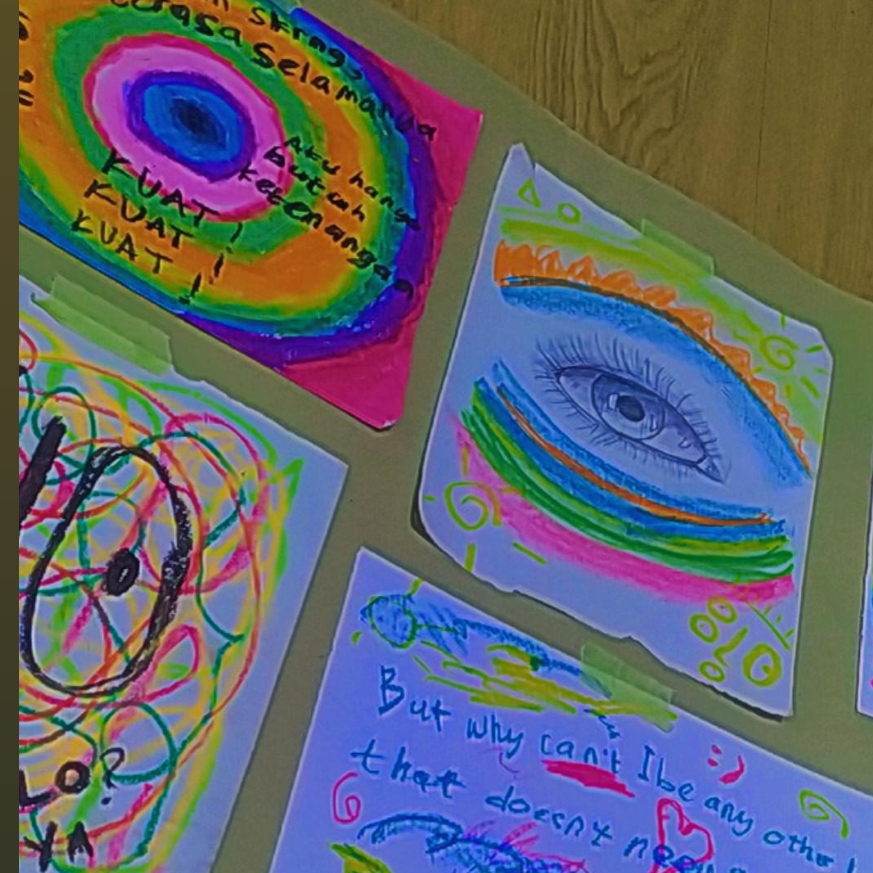 skrng
rasa selamat ya
Aku hanya
butuh
ketenanga
KUAT
KUAT
KUAT
LO?
YA
But why can't I be any other
that doesn't need